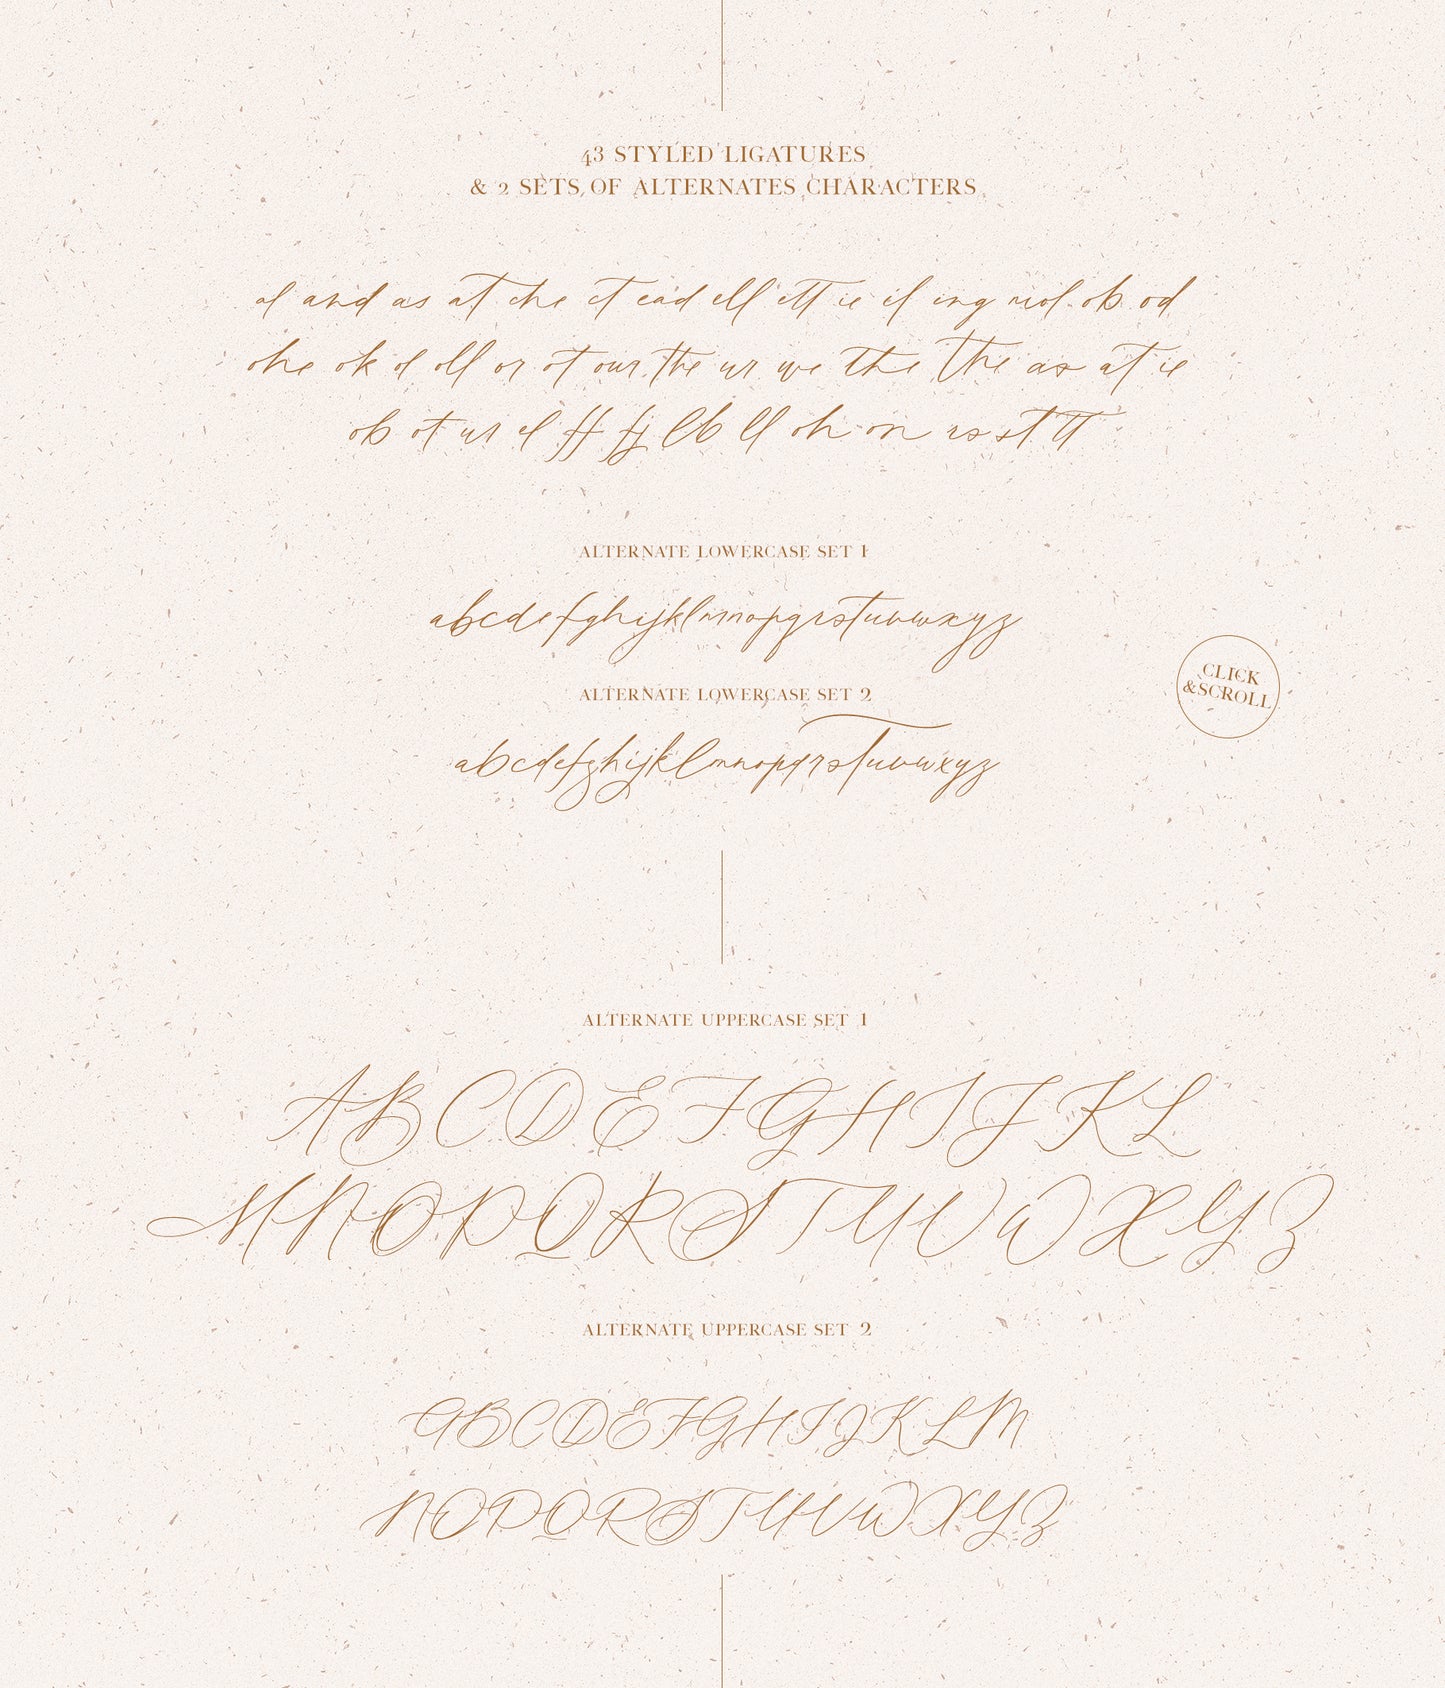 43 STYLED LIGATURES
& 2 SETS OF ALTERNATES CHARACTERS
al and as at che ct ead ell ett ie il ing nol ob od
ohe ok ol oll or ot our the ur we the the as at ie
ob ot us el ff fj lb ll oh on rs st tt
ALTERNATE LOWERCASE SET 1
abcdefghijklmnopqrstuvwxyz
ALTERNATE LOWERCASE SET 2
abcdefghijklmnopqrstuvwxyz
CLICK
&SCROLL
ALTERNATE UPPERCASE SET 1
ABCDEFGHIJKL
MNOPQRSTUVWXYZ
ALTERNATE UPPERCASE SET 2
ABCDEFGHIJKLM
NOPQRSTUVWXYZ